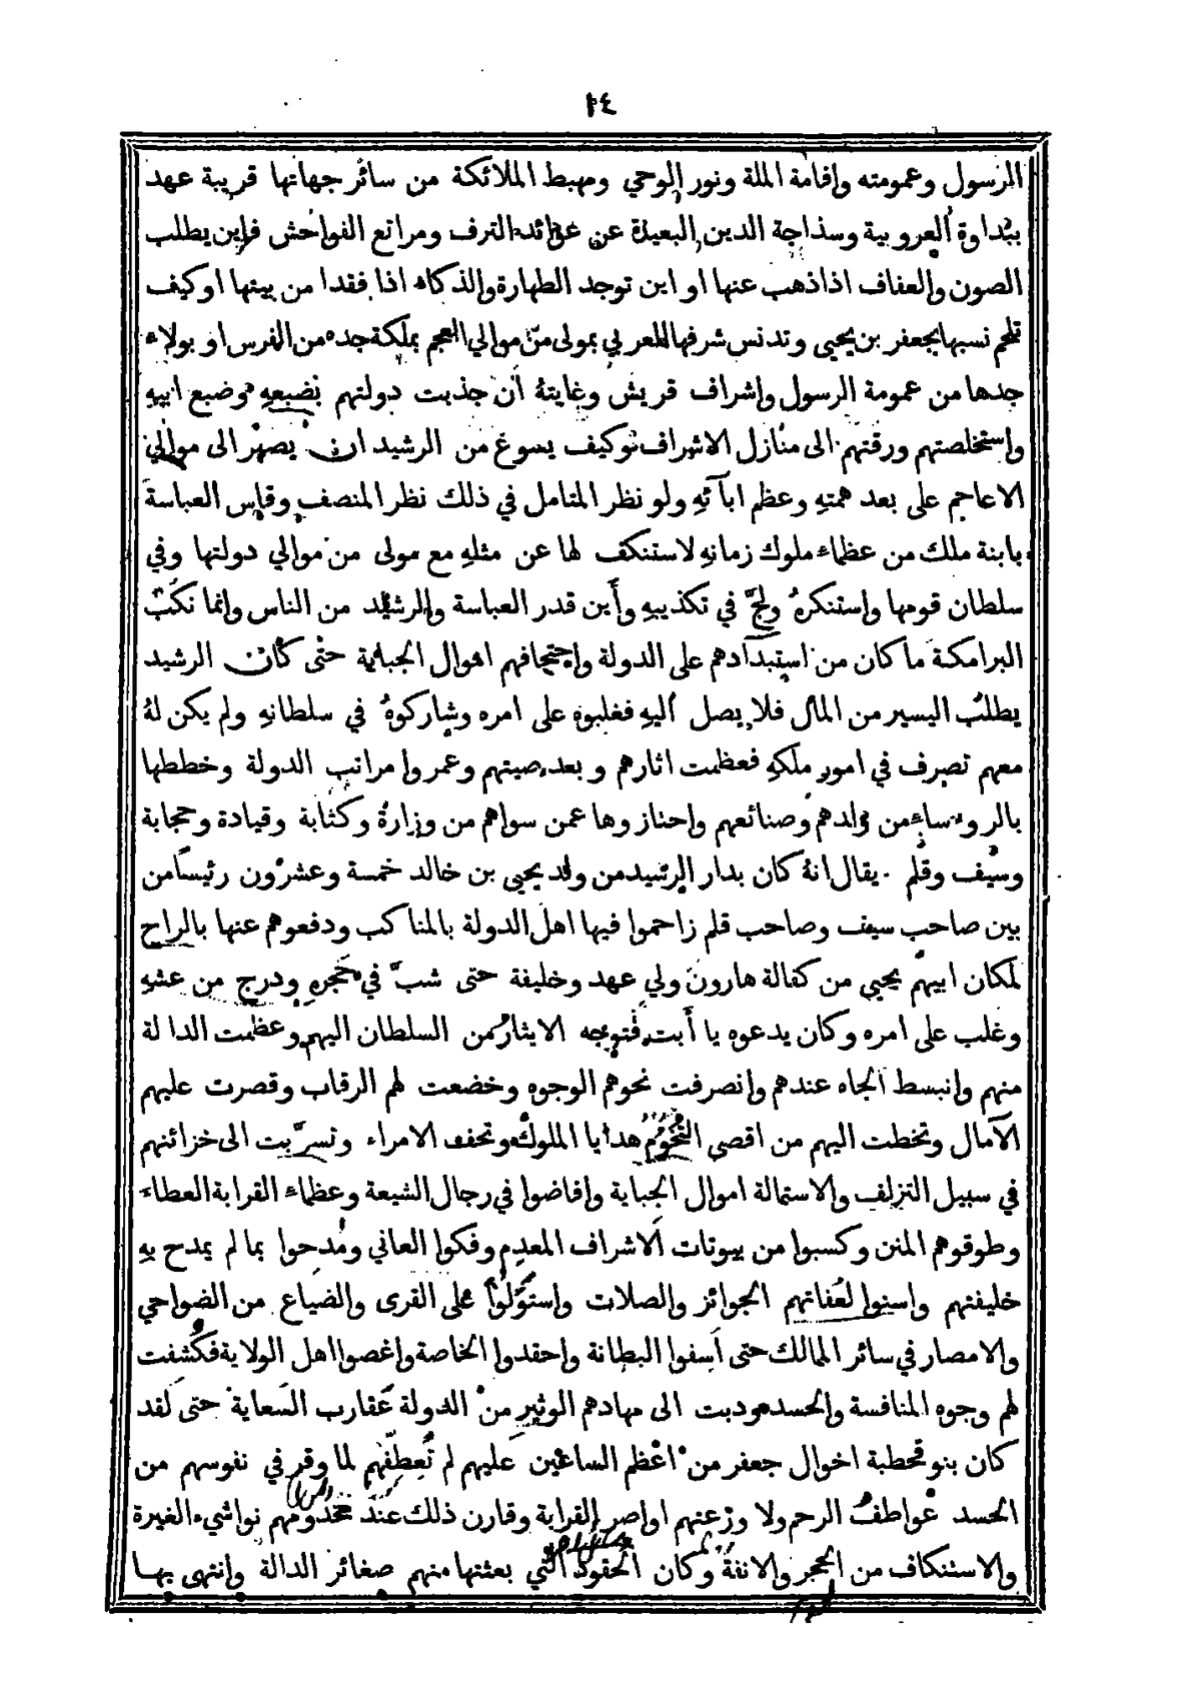 ١٤
الرسول وعمومته وإقامة الملة ونور الوحي ومهبط الملائكة من سائر جهاتها قريبة عهد
ببداوة العروبية وسذاجة الدين البعيدة عن عوائد الترف ومراتع الفواحش فاين يطلب
الصون والعفاف اذا ذهب عنها او اين توجد الطهارة والذكاء اذا فقدا من بيتها او كيف
تلحم نسبها بجعفر بن يحيى وتدنس شرفها العربي بمولى من موالي العجم بملكة جده من الفرس او بولاء
جدها من عمومة الرسول واشراف قريش وغايتهُ أن جذبت دولتهم بضبعهِ وضبع ابيهِ
واستخلصتهم ورقتهم الى منازل الاشراف وكيف يسوغ من الرشيد ان يصهر الى موالي
الاعاجم على بعد همتهِ وعظم ابآئهِ ولو نظر المتامل في ذلك نظر المنصف وقاس العباسة
بابنة ملك من عظماء ملوك زمانهِ لاستنكف لها عن مثلهِ مع مولى من موالي دولتها وفي
سلطان قومها واستنكرهُ ولجَّ في تكذيبهِ وأين قدر العباسة والرشيد من الناس وانما نكب
البرامكة ما كان من استبدادهم على الدولة واحتجافهم اموال الجباية حتى كان الرشيد
يطلب اليسير من المال فلا يصل اليهِ فغلبوه على امره وشاركوهُ في سلطانهِ ولم يكن لهُ
معهم تصرف في امور ملكهِ فعظمت اثارهم وبعد صيتهم وعمروا مراتب الدولة وخططها
بالروءساء من ولدهم وصنائعهم واحتازوها عمن سواهم من وزارة وكتابة وقيادة وحجابة
وسيف وقلم . يقال انهُ كان بدار الرشيد من ولد يحيى بن خالد خمسة وعشرون رئيسًا من
بين صاحب سيف وصاحب قلم زاحموا فيها اهل الدولة بالمناكب ودفعوهم عنها بالراح
لمكان ابيهم يحيى من كفالة هارون ولي عهد وخليفة حتى شبَّ في حجرهِ ودرج من عشهِ
وغلب على امره وكان يدعوه يا أبت فتوجه الايثار من السلطان اليهم وعظمت الدالة
منهم وانبسط الجاه عندهم وانصرفت نحوهم الوجوه وخضعت لهم الرقاب وقصرت عليهم
الآمال وتخطت اليهم من اقصى التخوم هدايا الملوك وتحف الامراء وتسرَّبت الى خزائنهم
في سبيل التزلف والاستمالة اموال الجباية وافاضوا في رجال الشيعة وعظماء القرابة العطاء
وطوقوهم المنن وكسبوا من بيوتات الاشراف المعدم وفكوا العاني ومُدحوا بما لم يمدح بهِ
خليفتهم واسنوا لعُفاتهم الجوائز والصلات واستولوا على القرى والضياع من الضواحي
والامصار في سائر الممالك حتى أسفوا البطانة واحقدوا الخاصة واغصوا اهل الولاية فكُشفت
لهم وجوه المنافسة والحسد ودبت الى مهادهم الوثير من الدولة عقارب السعاية حتى لقد
كان بنو قحطبة اخوال جعفر من اعظم الساعين عليهم لم تُعطِّفهم لما وقر في نفوسهم من
الحسد عواطفُ الرحم ولا وزعتهم اواصر القرابة وقارن ذلك عند مخدومهم نواشيء الغيرة
والاستنكاف من الحجر والانفة وكان الحقود التي بعثتها منهم صغائر الدالة وانتهى بها